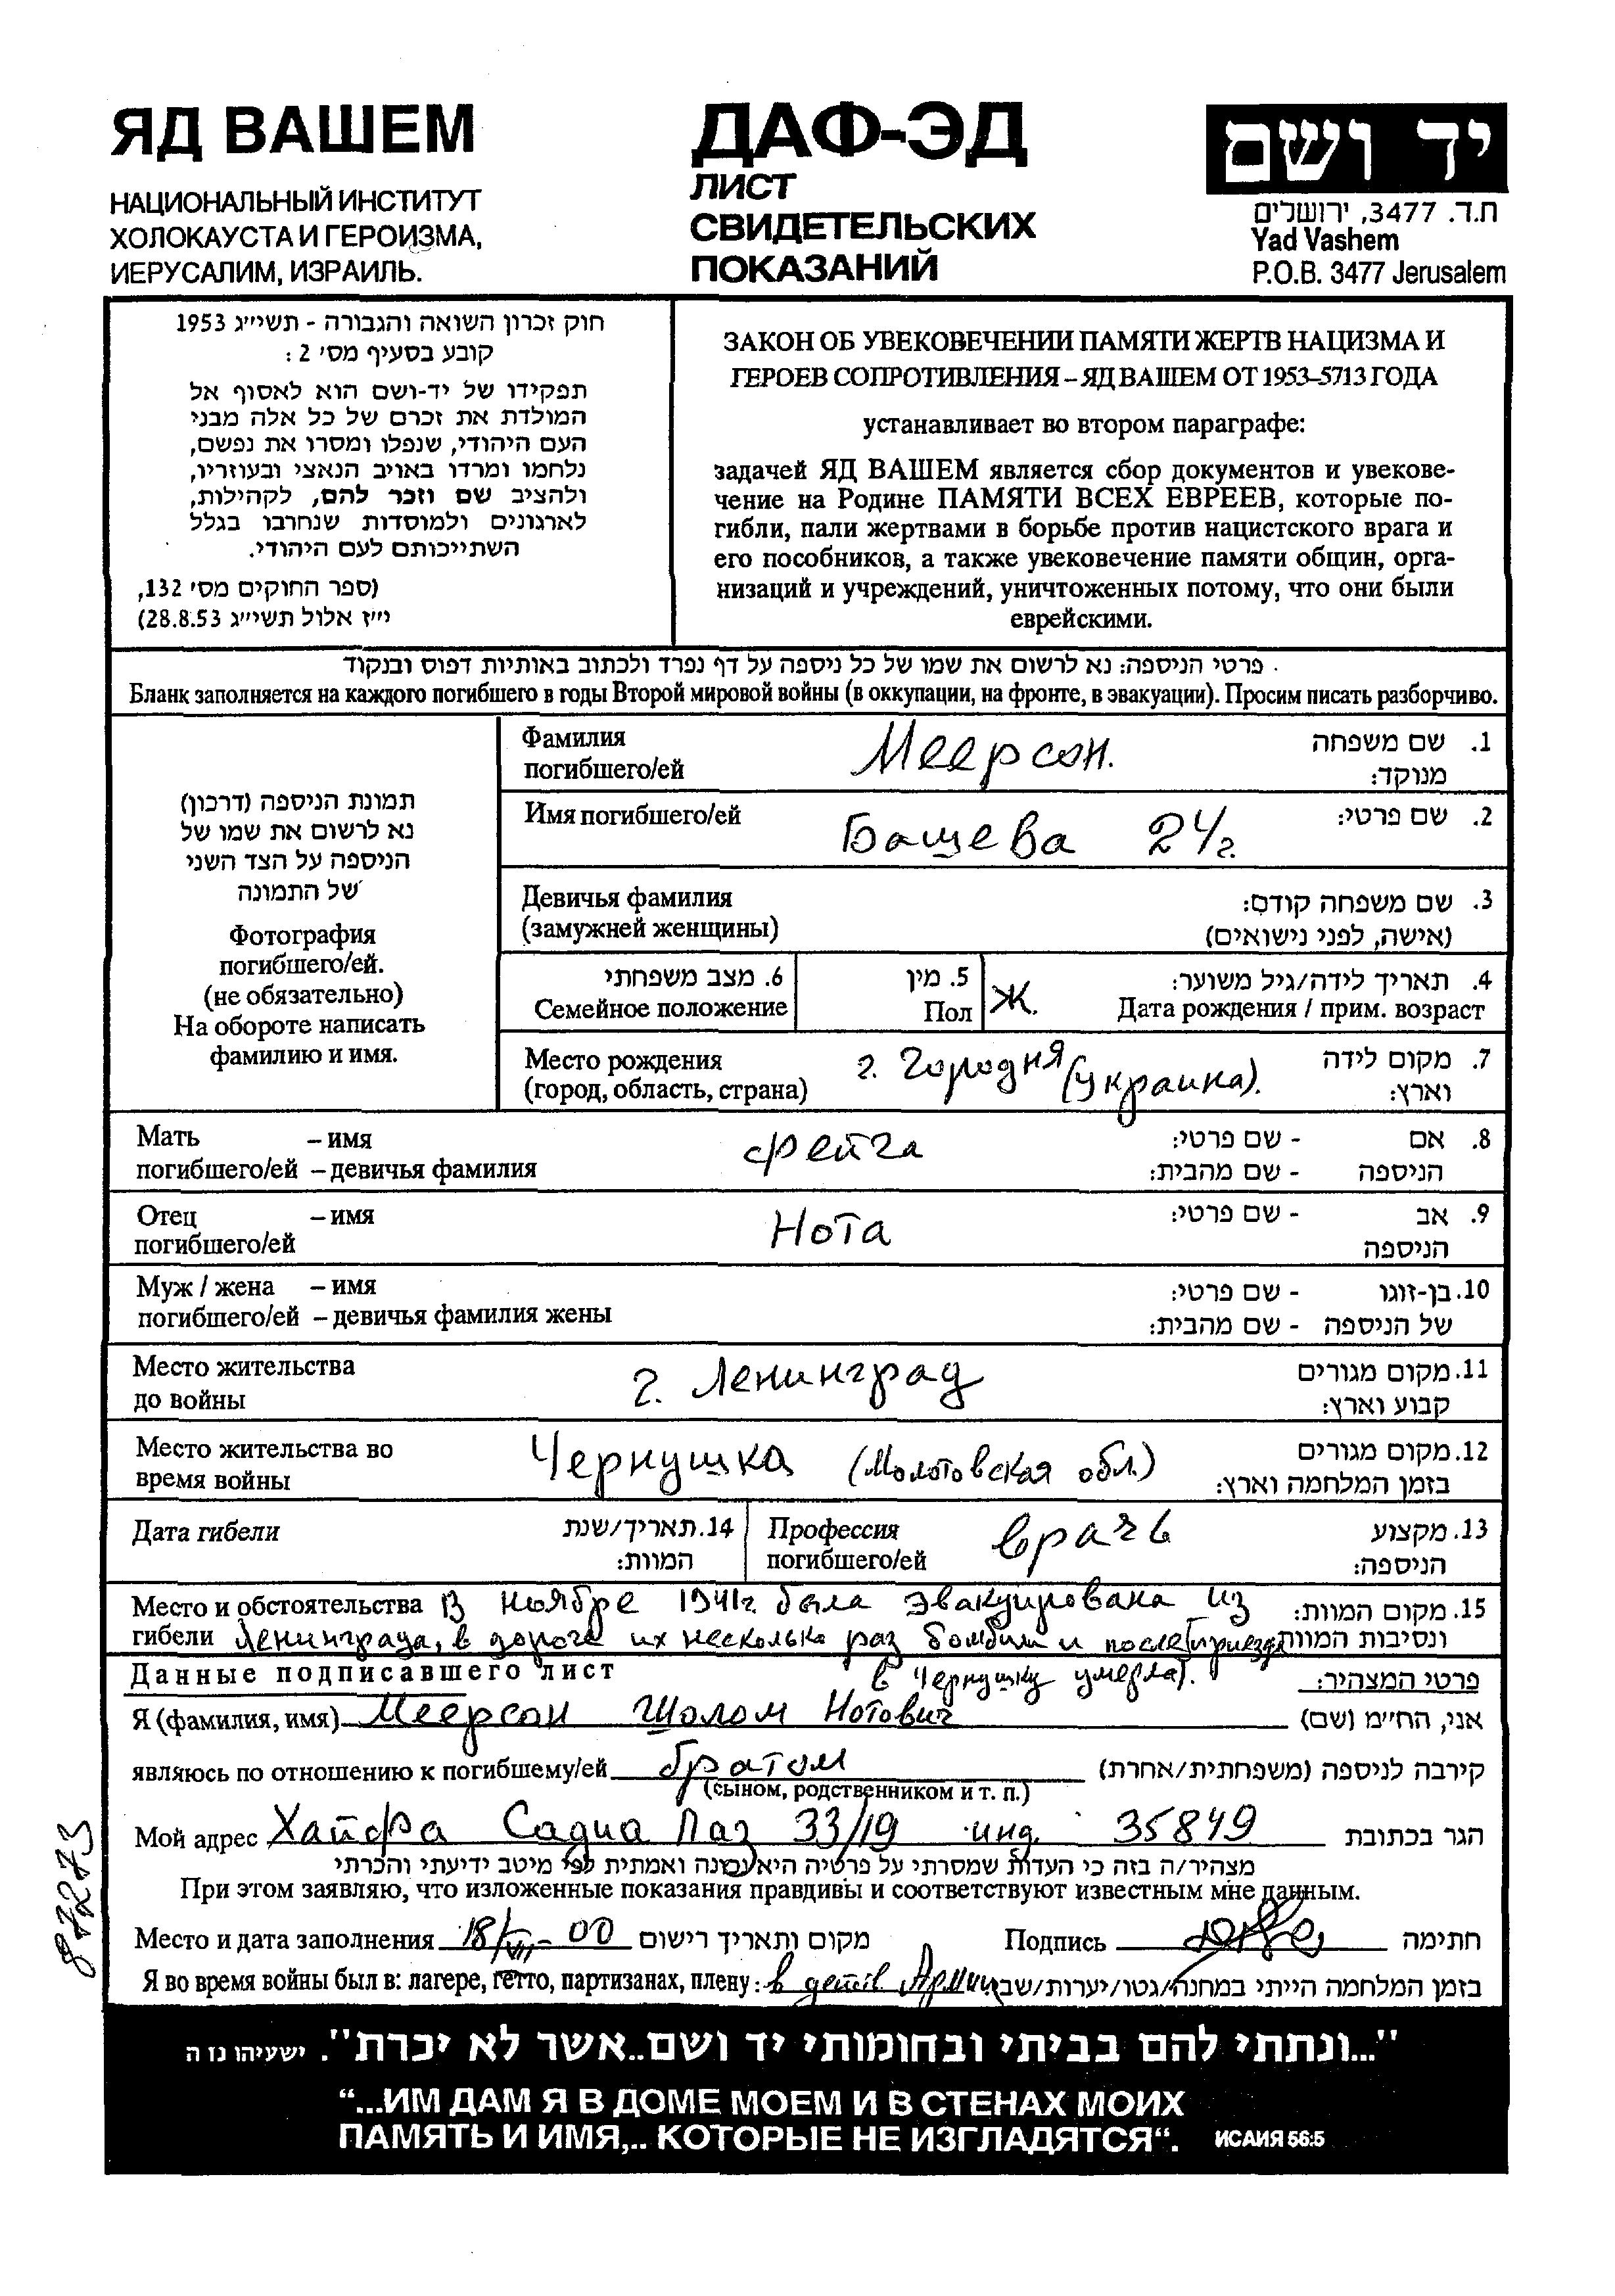 ЯД ВАШЕМ
НАЦИОНАЛЬНЫЙ ИНСТИТУТ
ХОЛОКАУСТА И ГЕРОИЗМА,
ИЕРУСАЛИМ, ИЗРАИЛЬ.
ДАФ-ЭД
ЛИСТ
СВИДЕТЕЛЬСКИХ
ПОКАЗАНИЙ
יד ושם
ת.ד. 3477, ירושלים
Yad Vashem
P.O.B. 3477 Jerusalem
חוק זכרון השואה והגבורה - תשי״ג 1953
קובע בסעיף מס׳ 2 :
תפקידו של יד-ושם הוא לאסוף אל
המולדת את זכרם של כל אלה מבני
העם היהודי, שנפלו ומסרו את נפשם,
נלחמו ומרדו באויב הנאצי ובעוזריו,
ולהציב שם וזכר להם, לקהילות,
לארגונים ולמוסדות שנחרבו בגלל
השתייכותם לעם היהודי.
(ספר החוקים מס׳ 132,
י״ז אלול תשי״ג 28.8.53)
ЗАКОН ОБ УВЕКОВЕЧЕНИИ ПАМЯТИ ЖЕРТВ НАЦИЗМА И
ГЕРОЕВ СОПРОТИВЛЕНИЯ – ЯД ВАШЕМ ОТ 1953–5713 ГОДА
устанавливает во втором параграфе:
задачей ЯД ВАШЕМ является сбор документов и увекове-
чение на Родине ПАМЯТИ ВСЕХ ЕВРЕЕВ, которые по-
гибли, пали жертвами в борьбе против нацистского врага и
его пособников, а также увековечение памяти общин, орга-
низаций и учреждений, уничтоженных потому, что они были
еврейскими.
פרטי הניספה: נא לרשום את שמו של כל ניספה על דף נפרד ולכתוב באותיות דפוס ובנקוד
Бланк заполняется на каждого погибшего в годы Второй мировой войны (в оккупации, на фронте, в эвакуации). Просим писать разборчиво.
תמונת הניספה (דרכון)
נא לרשום את שמו של
הניספה על הצד השני
של התמונה
Фотография
погибшего/ей.
(не обязательно)
На обороте написать
фамилию и имя.
Фамилия Меерсон. 1. שם משפחה
погибшего/ей מנוקד:
Имя погибшего/ей Башева 24г. 2. שם פרטי:
Девичья фамилия 3. שם משפחה קודם:
(замужней женщины) (אישה, לפני נישואים)
6. מצב משפחתי 5. מין 4. תאריך לידה/גיל משוער:
Семейное положение Пол Ж. Дата рождения / прим. возраст
Место рождения г. Городня (Украина). 7. מקום לידה
(город, область, страна) וארץ:
Мать – имя Фейга 8. אם - שם פרטי:
погибшего/ей – девичья фамилия הניספה - שם מהבית:
Отец – имя Нота 9. אב - שם פרטי:
погибшего/ей הניספה
Муж / жена – имя 10. בן-זוגו - שם פרטי:
погибшего/ей – девичья фамилия жены של הניספה - שם מהבית:
Место жительства г. Ленинград 11. מקום מגורים
до войны קבוע וארץ:
Место жительства во Чернушка (Молотовская обл.) 12. מקום מגורים
время войны בזמן המלחמה וארץ:
Дата гибели 14. תאריך/שנת Профессия врачь 13. מקצוע
המוות: погибшего/ей הניספה:
Место и обстоятельства В ноябре 1941г. была эвакуирована из 15. מקום המוות:
гибели Ленинграда, в дороге их несколько раз бомбили и после приезда ונסיבות המוות
Данные подписавшего лист в Чернушку умерла). פרטי המצהיר:
Я (фамилия, имя) Меерсон Шолом Нотович אני, הח״מ (שם)
являюсь по отношению к погибшему/ей братом קירבה לניספה (משפחתית/אחרת)
(сыном, родственником и т. п.)
Мой адрес Хайфа Садиа Паз 33/19 инд. 35849 הגר בכתובת
מצהיר/ה בזה כי העדות שמסרתי על פרטיה היא נכונה ואמתית לפי מיטב ידיעתי והכרתי
При этом заявляю, что изложенные показания правдивы и соответствуют известным мне данным.
Место и дата заполнения 18/VII-00 מקום ותאריך רישום Подпись חתימה
Я во время войны был в: лагере, гетто, партизанах, плену: в дейтв Армии בזמן המלחמה הייתי במחנה/גטו/יערות/שבי
87273
"...ונתתי להם בביתי ובחומותי יד ושם..אשר לא יכרת". ישעיהו נז ה
“...ИМ ДАМ Я В ДОМЕ МОЕМ И В СТЕНАХ МОИХ
ПАМЯТЬ И ИМЯ,.. КОТОРЫЕ НЕ ИЗГЛАДЯТСЯ“. ИСАИЯ 56:5